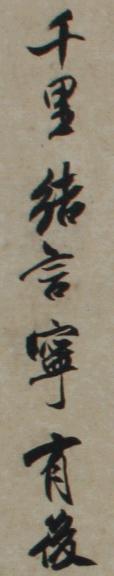 千里結言寧有後